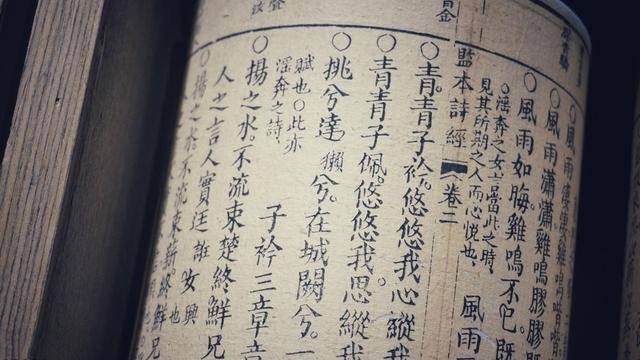 ○風雨淒淒雞鳴喈喈
○風雨瀟瀟雞鳴膠膠
○風雨如晦雞鳴不已既
○淫奔之女言當此之時
見其所期之人而心悅也
風雨
監本詩經 卷二
○青青子衿。悠悠我心縱
○青青子佩。悠悠我思縱我
○挑兮達獺兮。在城闕兮。一
賦也○此亦
淫奔之詩
子衿三章章
○揚之水。不流束楚終鮮兄
人之言人實廷誑女興也
○揚之水不流束薪。終鮮兄